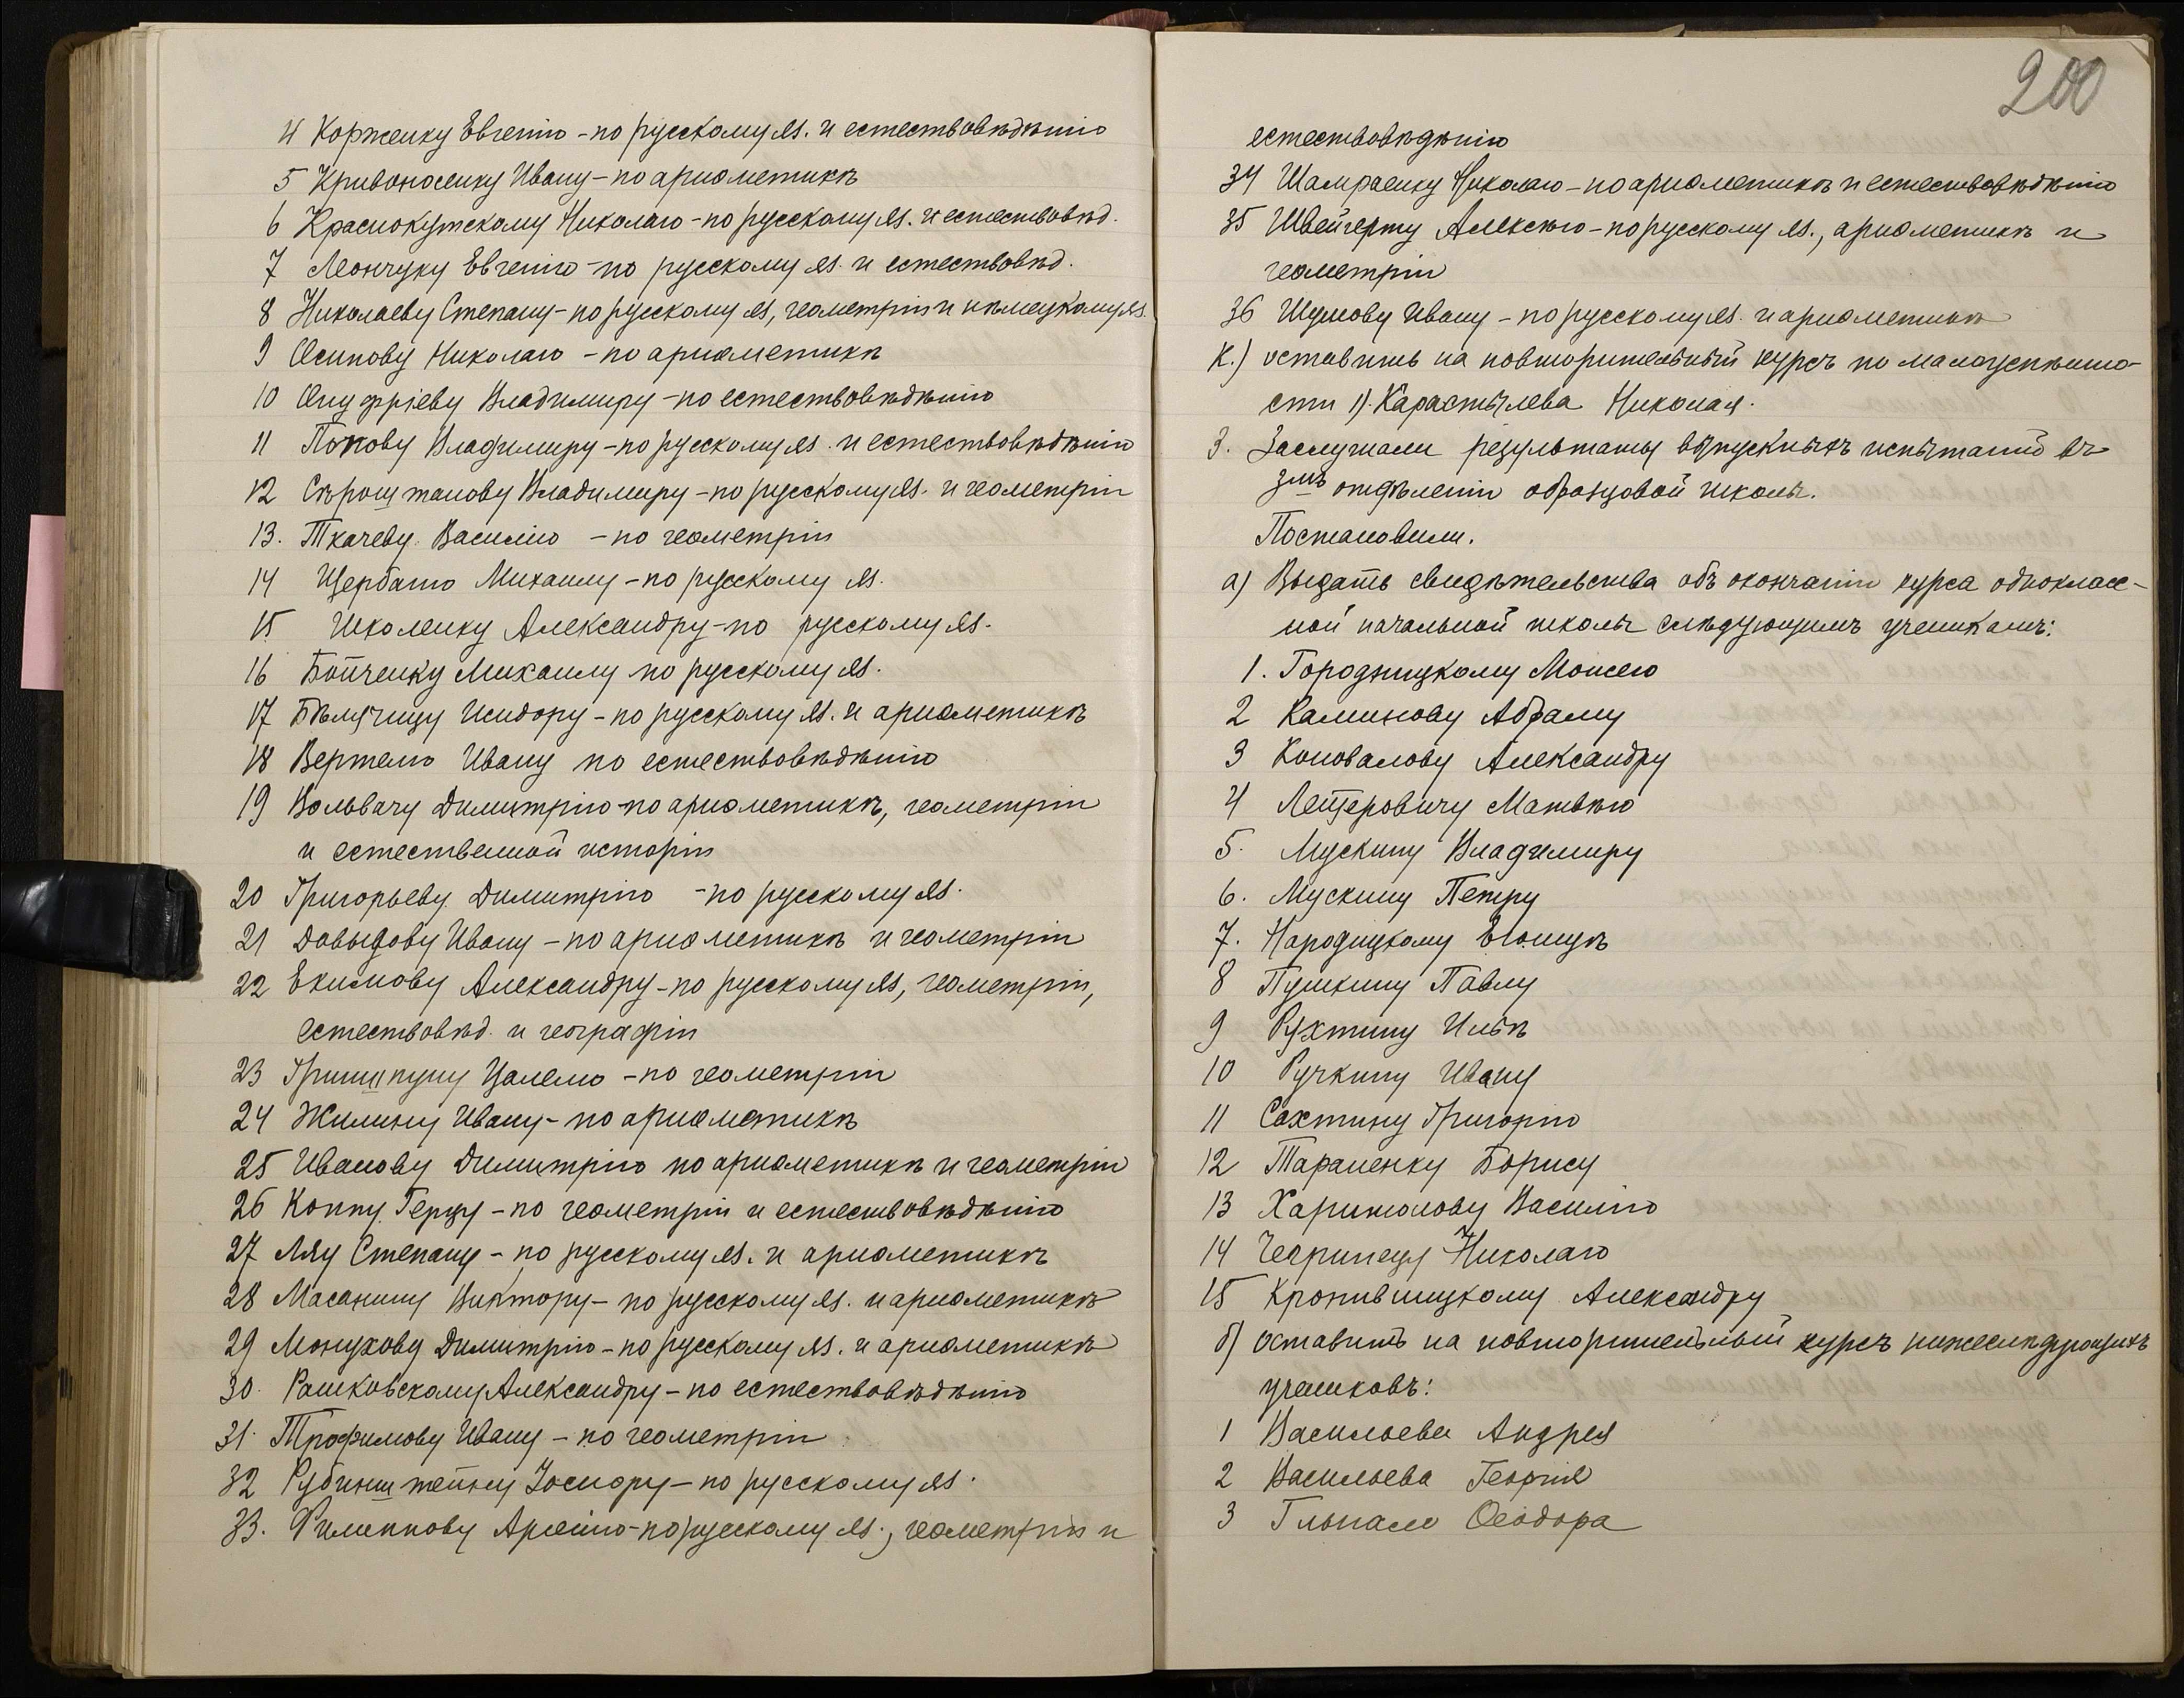 4 Корженку Евгенію - по русскому яз. и естествовѣдѣнію
5 Кривоносенку Ивану - по ариѳметикѣ
6 Краснокутскому Николаю - по русскому яз. и естествовѣд.
7 Леончуку Евгенію - по русскому яз. и естествовѣд.
8 Николаеву Степану - по русскому яз, геометріи и нѣмецкому яз.
9 Осипову Николаю - по ариѳметикѣ
10 Онуфріеву Владимиру - по естествовѣдѣнію
11 Попову Владимиру - по русскому яз. и естествовѣдѣнію
12 Сѣроштанову Владимиру - по русскому яз. и геометріи
13. Ткачеву Василію - по геометріи
14 Щербато Михаилу - по русскому яз.
15 Школенку Александру - по русскому яз.
16 Бойченку Михаилу по русскому яз.
17 Исидору - по русскому яз. и ариѳметикѣ
18 Вертело Ивану по естествовѣдѣнію
19 Вольвачу Димитрію - по ариѳметикѣ, геометріи
и естественной исторіи
20 Григорьеву Димитрію - по русскому яз.
21 Давыдову Ивану - по ариѳметикѣ и геометріи
22 Екимову Александру - по русскому яз, геометріи,
естествовѣд. и географіи
23 Гришпуну Цалелю - по геометріи
24 Жилину Ивану - по ариѳметикѣ
25 Иванову Димитрію по ариѳметикѣ и геометріи
26 Коппу Герцу - по геометріи и естествовѣдѣнію
27 Ляу Степану - по русскому яз. и ариѳметикѣ
28 Масанину Виктору - по русскому яз. и ариѳметикѣ
29 Монухову Димитрію - по русскому яз. и ариѳметикѣ
30. Рашковскому Александру - по естествовѣдѣнію
31. Трофимову Ивану - по геометріи
32 Рубинштейну - по русскому яз.
33. Филиппову Арсенію - по русскому яз., геометріи и
200
естествовѣдѣнію
34 Шамраенку Николаю - по ариѳметикѣ и естествовѣдѣнію
35 Швейгерту Алексѣю - по русскому яз., ариѳметикѣ и
геометріи
36 Шумову Ивану - по русскому яз. и ариѳметикѣ
к.) оставить на повторительный курсъ по малоуспѣшно-
сти 1). Карастылева Николая.
3. Заслушали результаты выпускныхъ испытаній въ
3мъ отдѣленіи образцовой школы.
Постановили.
а) Выдать свидѣтельства объ окончаніи курса однокласс-
ной начальной школы слѣдующимъ ученикамъ:
1. Городницкому Моисею
2 Каминову Абраму
3 Коновалову Александру
4 Лейзеровичу Матвѣю
5. Мускину Владимиру
6. Мускину Петру
7. Народицкому
8 Пушкину Павлу
9 Рухтину Ильѣ
10 Ручкину Ивану
11 Сахтину Григорію
12 Тараненку Борису
13 Харитонову Василію
14 Николаю
15 Кропивницкому Александру
б) оставить на повторительный курсъ нижеслѣдующихъ
учениковъ:
1 Васильева Андрея
2 Васильева Георгія
3 Ѳеодора